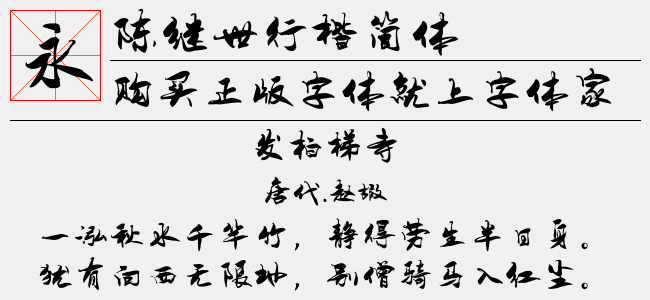 永
陈继世行楷简体
购买正版字体就上字体家
发柏梯寺
唐代.赵嘏
一泓秋水千竿竹，静得劳生半日身。
犹有向西无限地，别僧骑马入红尘。